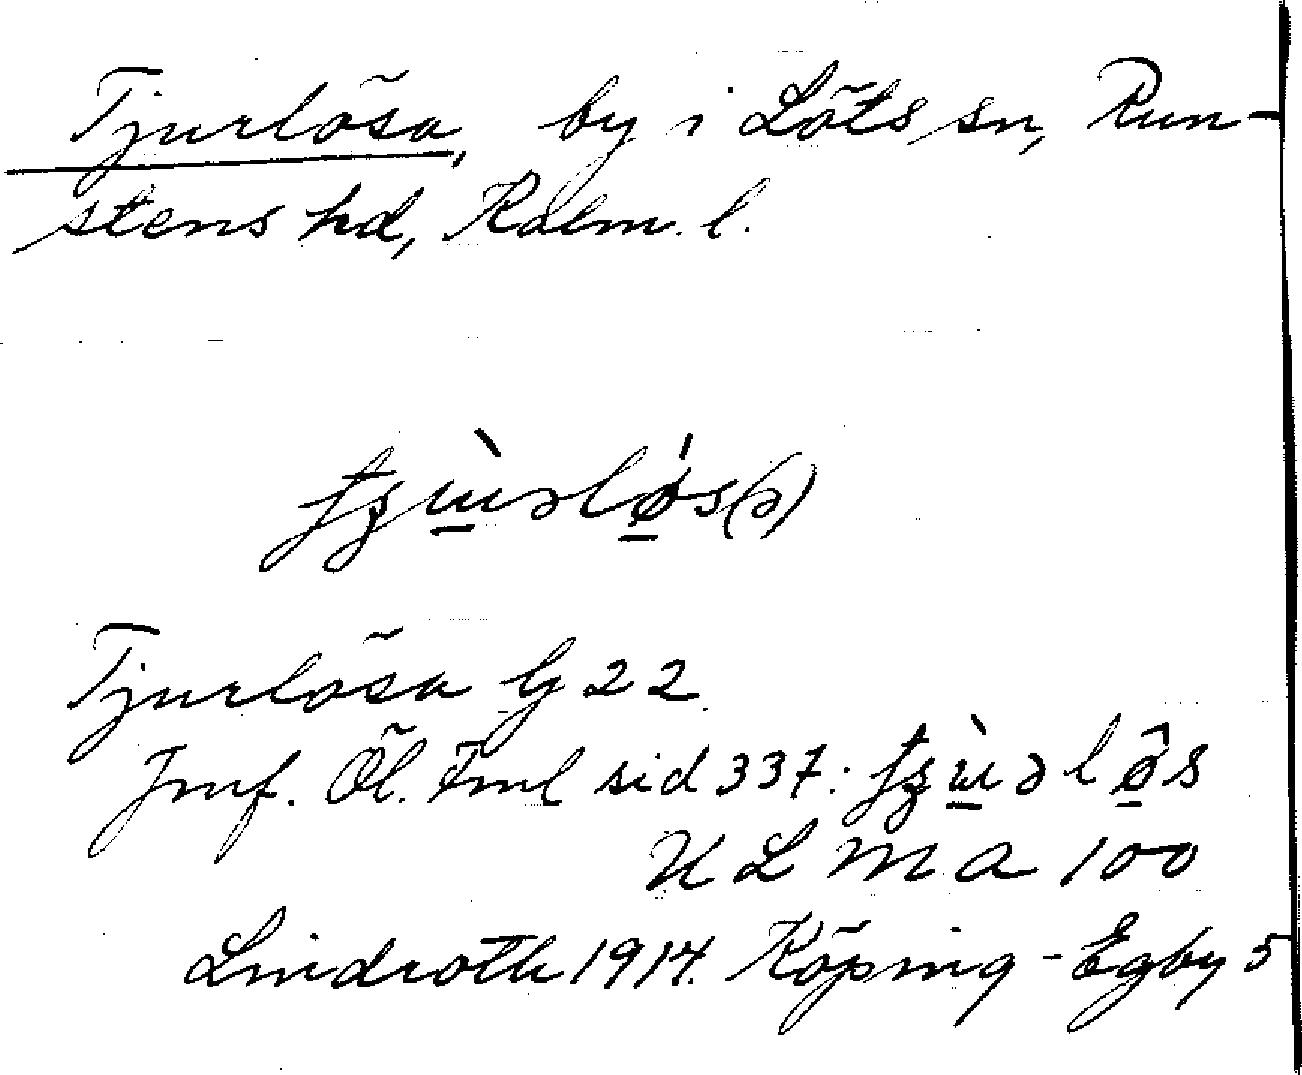 Tjurlösa, by i Löts sn, Run-
stens hd, Kalm. l.
Tjurlösa G 22
Jmf. Öl. Fml sid 337:
ULMA 100
Lindroth 1914. Köping-Egby 5